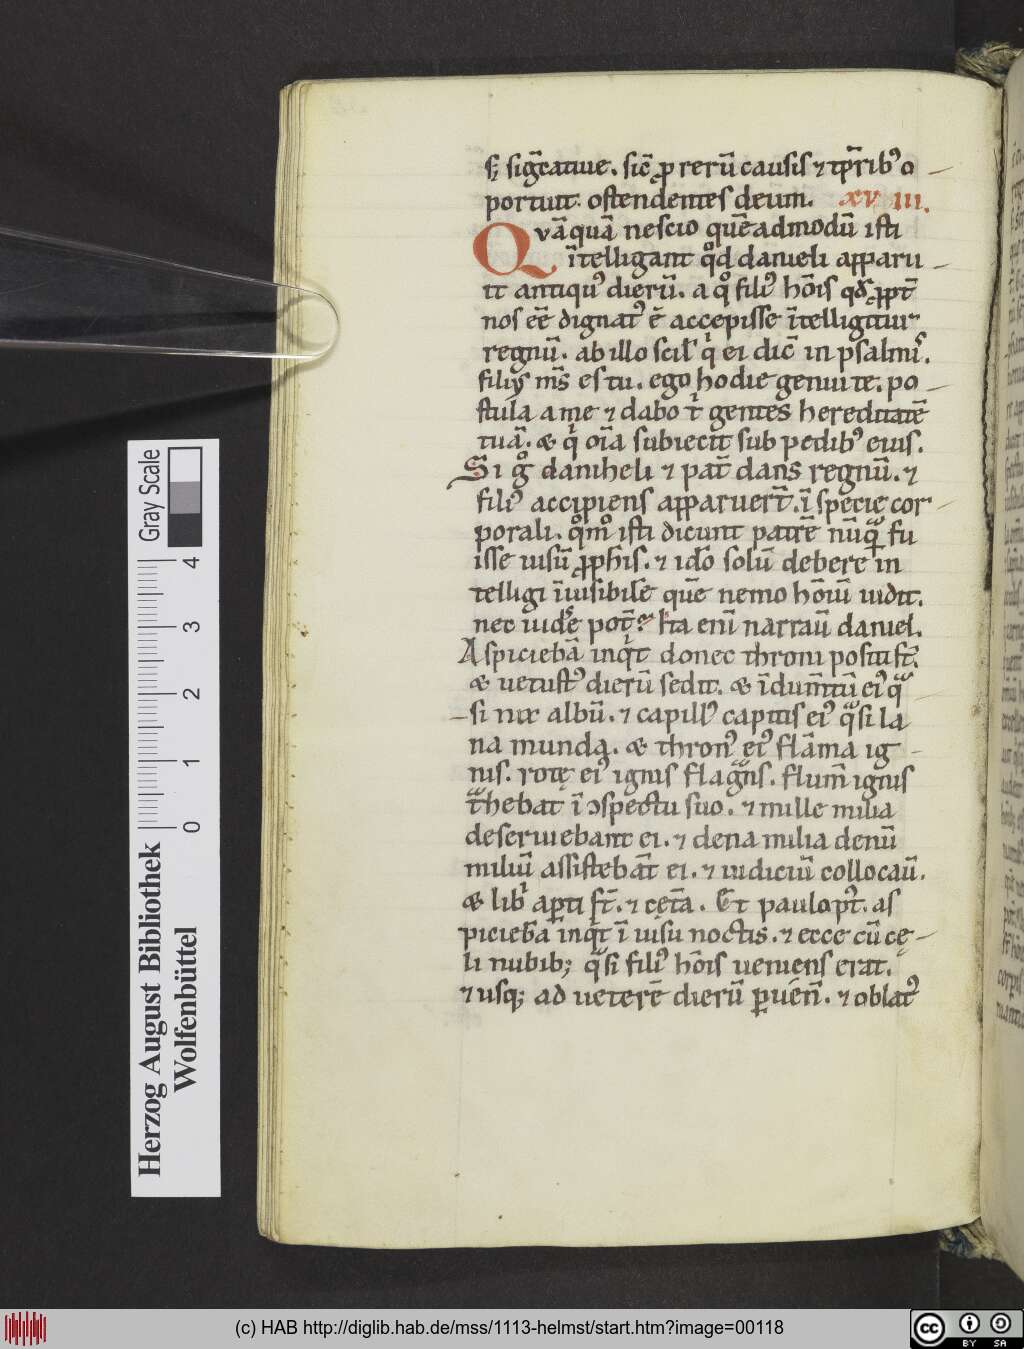 sꝫ sigͨatiue. sic̄ ꝓ rerū causis ⁊ tp̄rib᷒ o
portuit ostendentes deum. XVIII.
Qvāquā nescio quēadmodū isti
ītelligant qͦd danieli apparu
it antiqu᷒ dierū. a qͦ fili᷒ hōis qd̄ ꝓpt̄
nos eē dignat᷒ ē accepisse ītelligitur
regnū. ab illo scil' qͥ ei dic̄ in psalmis.
filius ms̄ es tu. ego hodie genui te. po
stula a me ⁊ dabo tͥ gentes hereditatē
tuā. & qͥ oīa subiecit sub pedib᷒ eius.
Si gͦ daniheli ⁊ pat̄ dans regnū. ⁊
fili᷒ accipiens apparuer̄t. ī specie cor
porali. qͦmͦ isti dicunt patrē nūqͣ fu
isse uisū ꝓphis. ⁊ idō solū debere in
telligi īuisibilē quē nemo hōiū uidit.
nec uidere potͥ? Ita enī narrauͥ daniel.
Aspiciebā inqͥt donec throni positi st̄.
& uetust᷒ dierū sedit. & īdum̄tū ei᷒ qͣ
si nix albū. ⁊ capill᷒ capitis ei᷒ qͣsi la
na munda. & thron᷒ ei᷒ flāma ig
nis. rotę ei᷒ ignis flagͣns. flum̄ ignis
tͣhebat ī ɔspectu suo. ⁊ mille milia
deseruiebant ei. ⁊ dena milia denū
miliū assistebāt ei. ⁊ iudiciū collocauͥ.
& librͥ apti st̄. ⁊ cętā. Et paulo pt᷒. as
piciebā inqͥt ī uisu noctis. ⁊ ecce cū cę
li nubibꝫ qͣsi fili᷒ hōis ueniens erat.
⁊ usqꝫ ad ueterē dierū ꝑuēn̄. ⁊ oblat᷒
Herzog August Bibliothek
Wolfenbüttel
Gray Scale
0 1 2 3 4
(c) HAB http://diglib.hab.de/mss/1113-helmst/start.htm?image=00118
cc BY SA